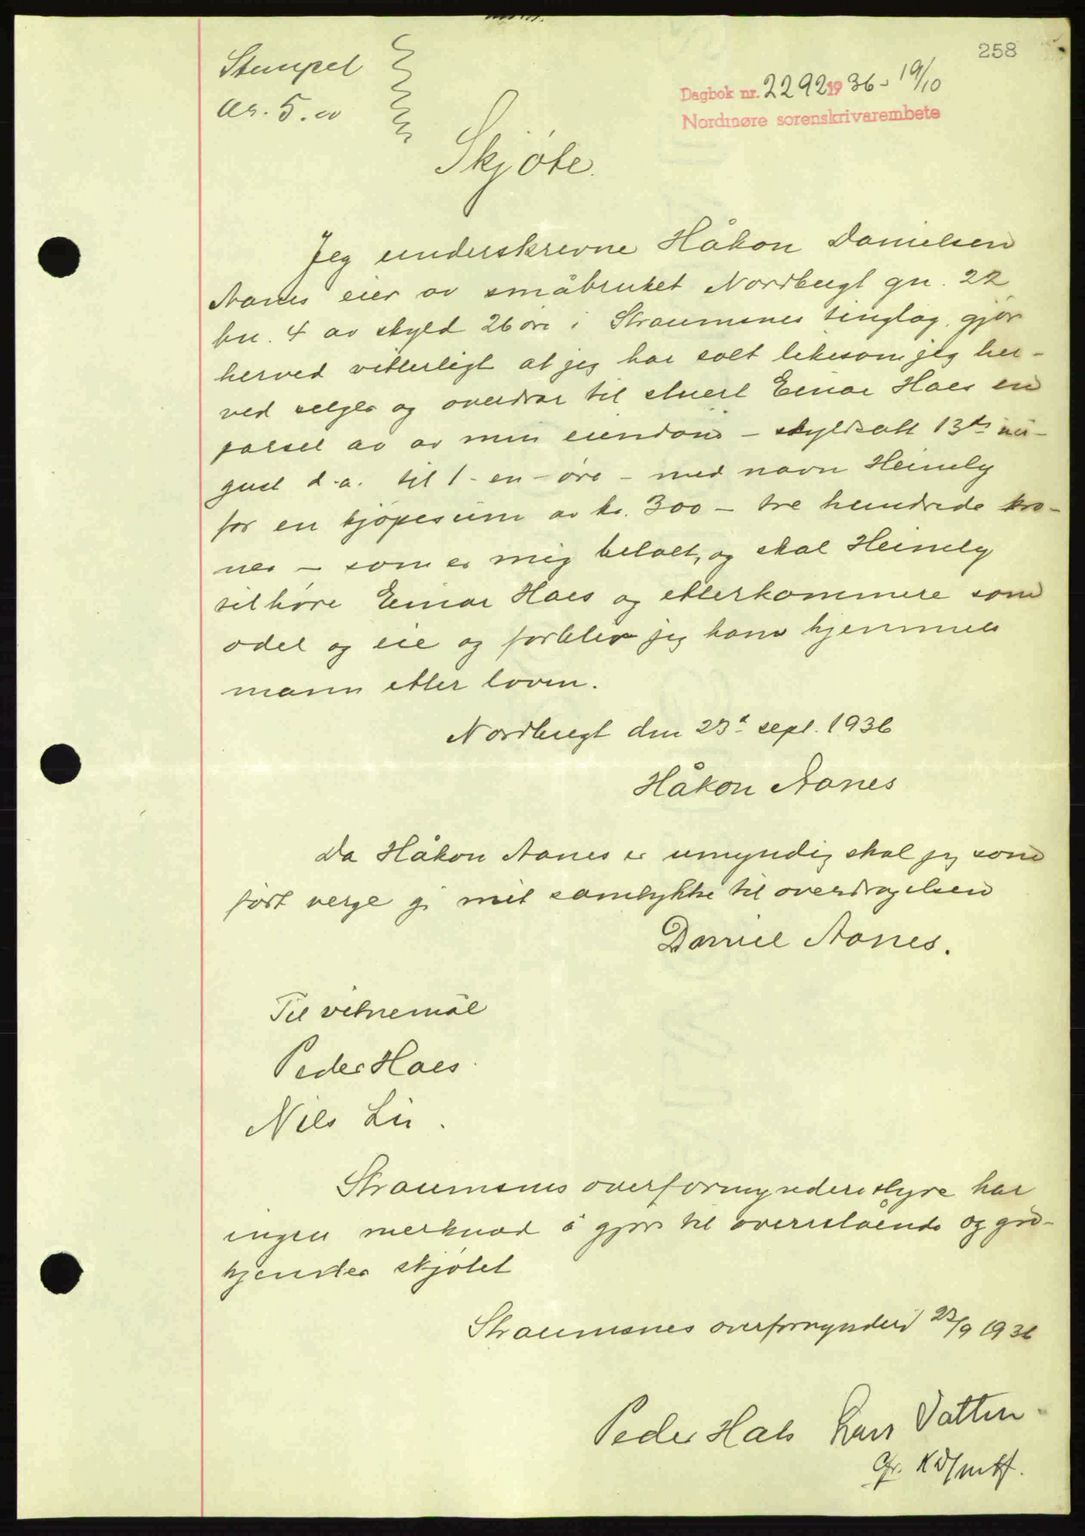 258
Stempel
kr. 5.00
Dagbok nr. 2292 1936 - 19/10
Nordmøre sorenskrivarembete
Skjøte.
Jeg underskrevne Håkon Danielsen
Aanes eier av småbruket Nordbugt gn. 22
bn. 4 av skyld 26 øre i Straumsnes tinglag, gjør
herved vitterligt at jeg har solt likesom jeg her-
ved selger og overdrar til stuert Einar Haes en
parsel av av min eiendom - skyldsatt 13de
gust d.a. til 1 - en - øre - med navn Heimly
for en kjøpesum av kr. 300 - tre hundrede kro-
ner - som er mig betalt, og skal Heimly
tilhøre Einar Haes og etterkommere som
odel og eie og forblir jeg hans hjemmels
mann etter loven.
Nordbugt den 23d sept. 1936
Håkon Aanes
Da Håkon Aanes er umyndig skal jeg som
født verge gi mit samtykke til overdragelsen
Daniel Aanes.
Til vitnemål
Peder Haes.
Nils Li.
Straumsnes overformynderistyre har
ingen merknad å gjøre til overstående og god-
kjendes skjøtet
Straumsnes overformynderi 23/9 1936
Peder Hals Lars Vatten